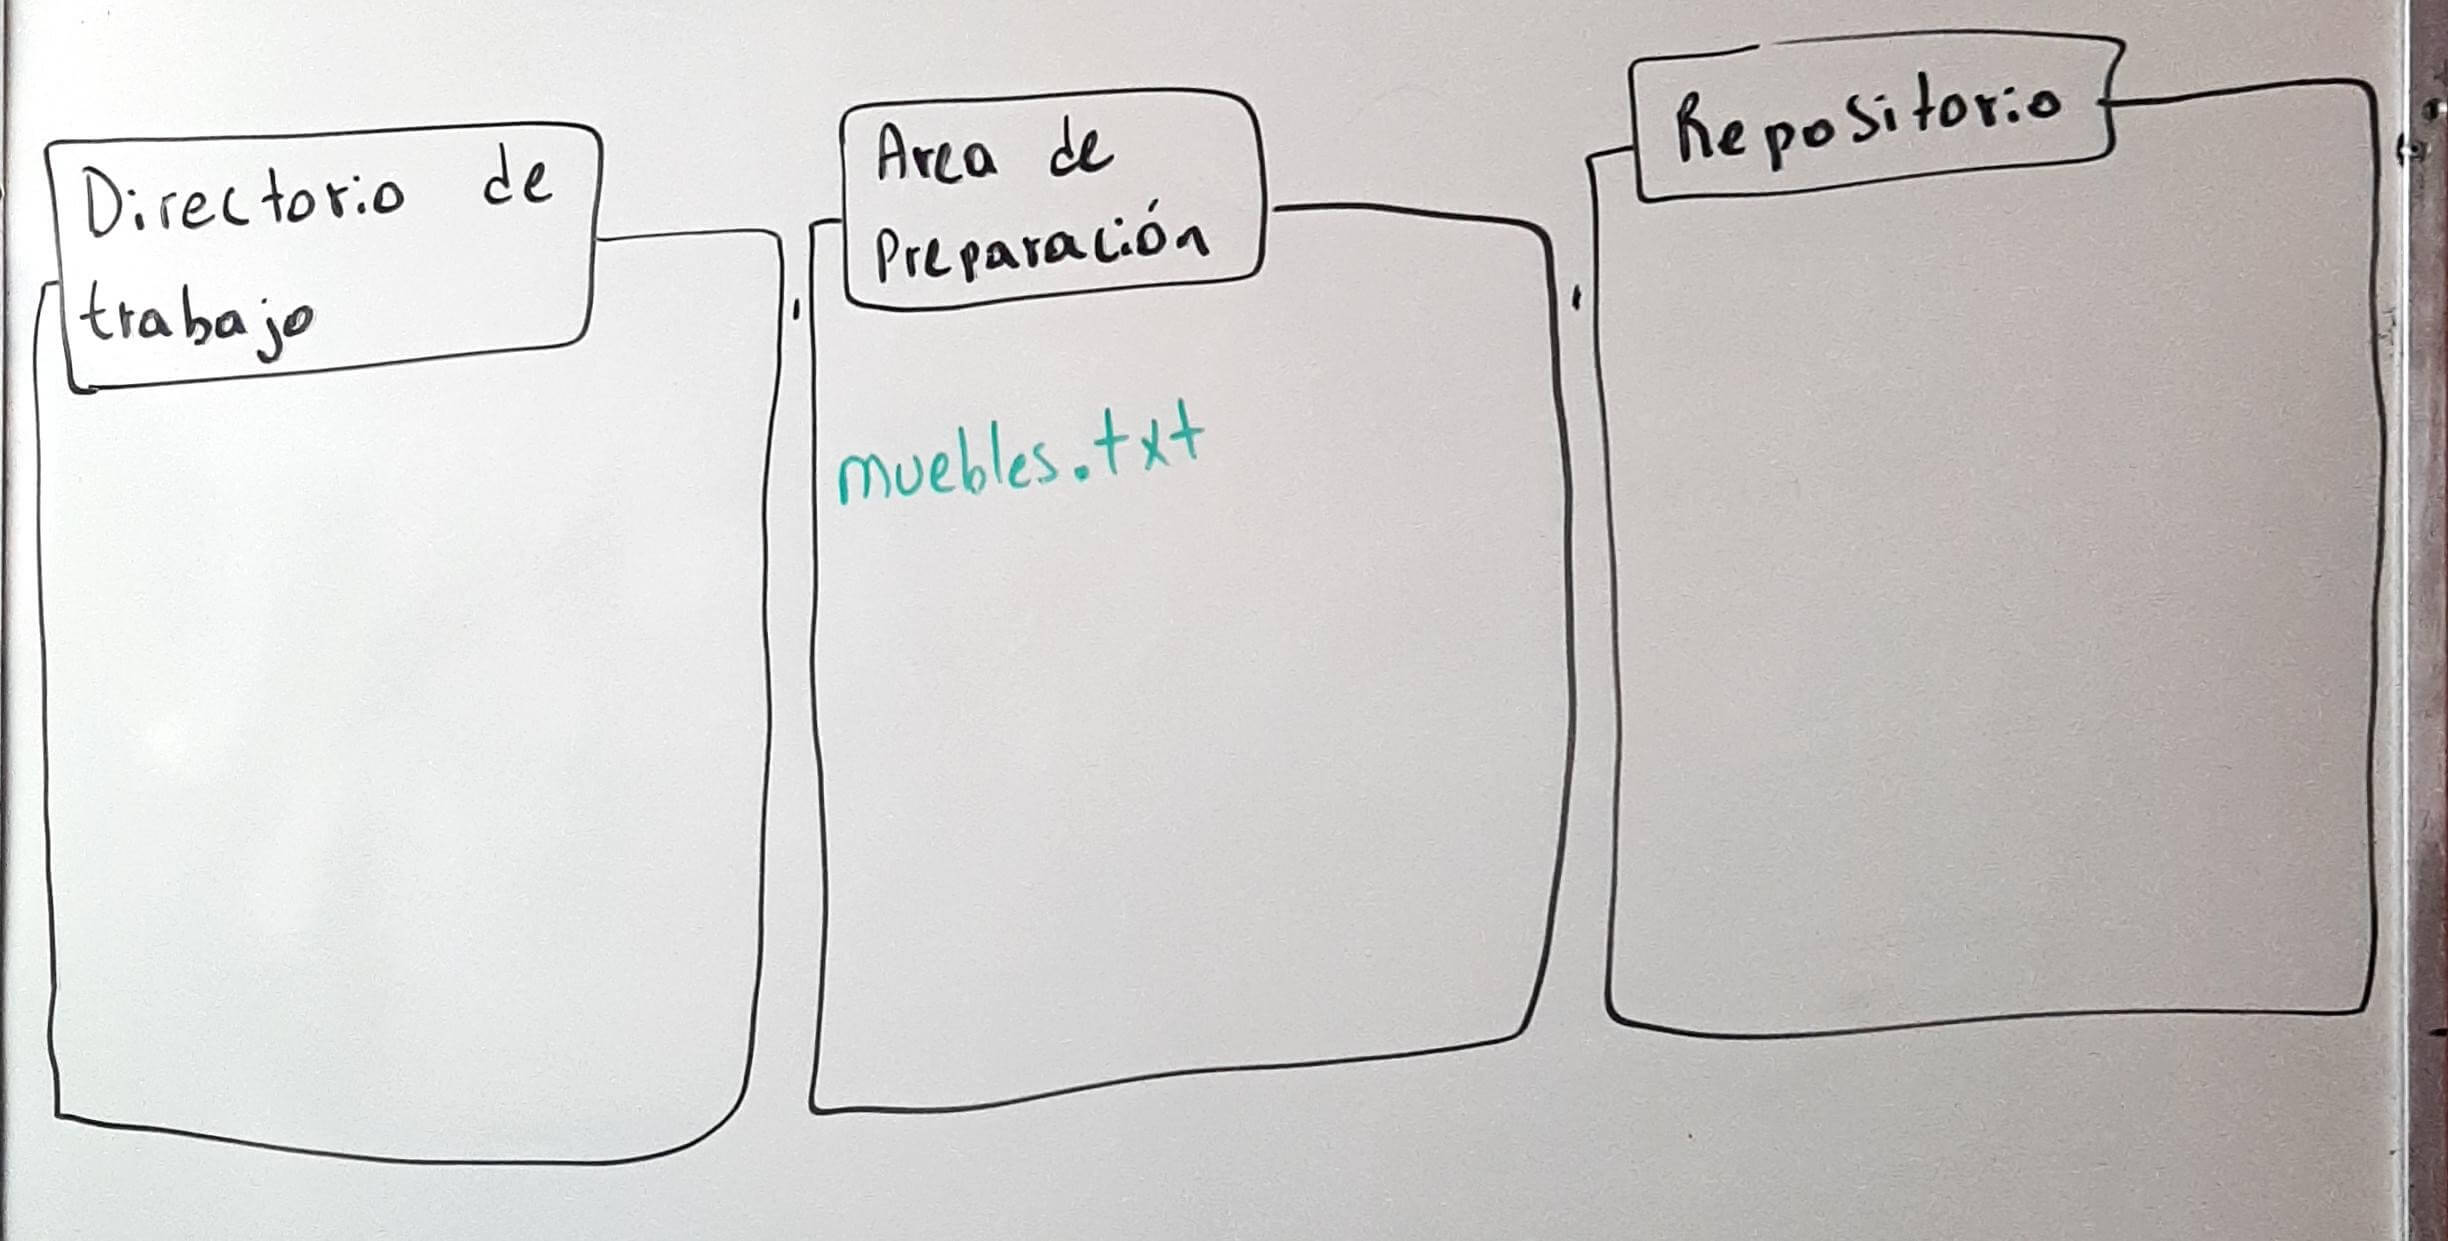 Directorio de
trabajo
Area de
Preparación
muebles.txt
Repositorio